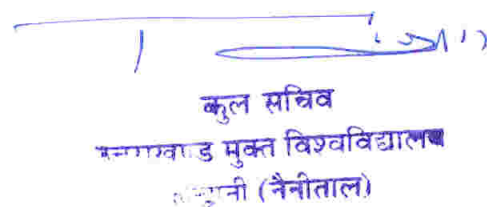 कुल सचिव
उत्तराखण्ड मुक्त विश्वविद्यालय
(नैनीताल)